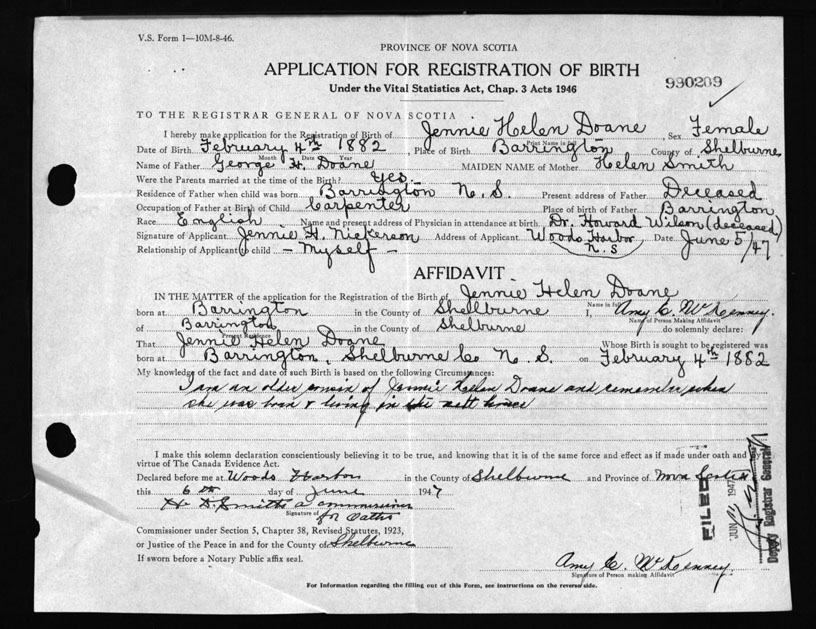 V.S. Form 1—10M-8-46.
PROVINCE OF NOVA SCOTIA
APPLICATION FOR REGISTRATION OF BIRTH
990209
Under the Vital Statistics Act, Chap. 3 Acts 1946
TO THE REGISTRAR GENERAL OF NOVA SCOTIA
I hereby make application for the Registration of Birth of Jennie Helen Doane, Sex Female
Print Name in full
Date of Birth February 4th 1882, Place of Birth Barrington County of Shelburne
Month Date Year
Name of Father George H. Doane MAIDEN NAME of Mother Helen Smith
Were the Parents married at the time of the Birth? Yes
Residence of Father when child was born Barrington N.S. Present address of Father Deceased
Occupation of Father at Birth of Child Carpenter Place of birth of Father Barrington
Race English Name and present address of Physician in attendance at birth Dr. Howard Wilson (deceased)
Signature of Applicant Jennie H. Nickerson Address of Applicant Woods Harbor N.S Date June 5/47
Relationship of Applicant to child - Myself -
AFFIDAVIT
IN THE MATTER of the application for the Registration of the Birth of Jennie Helen Doane
Name in full
born at Barrington in the County of Shelburne I, Amy C. McKenney.
Name of Person Making Affidavit
of Barrington in the County of Shelburne do solemnly declare:
That Jennie Helen Doane Whose Birth is sought to be registered was
born at Barrington, Shelburne Co N.S. on February 4th 1882
My knowledge of the fact and date of such Birth is based on the following Circumstances:
I am an older cousin of Jennie Helen Doane and remember when
she was born & living in the next house
I make this solemn declaration conscientiously believing it to be true, and knowing that it is of the same force and effect as if made under oath and by
virtue of The Canada Evidence Act.
Declared before me at Woods Harbor in the County of Shelburne and Province of Nova Scotia
this 6th day of June 1947
H. D. Smith a commissioner
Signature of
for Oaths
Commissioner under Section 5, Chapter 38, Revised Statutes, 1923,
or Justice of the Peace in and for the County of Shelburne
If sworn before a Notary Public affix seal.
FILED
JUN 1947
Deputy Registrar General
Amy C. McKenney
Signature of Person making Affidavit
For Information regarding the filling out of this Form, see instructions on the reverse side.